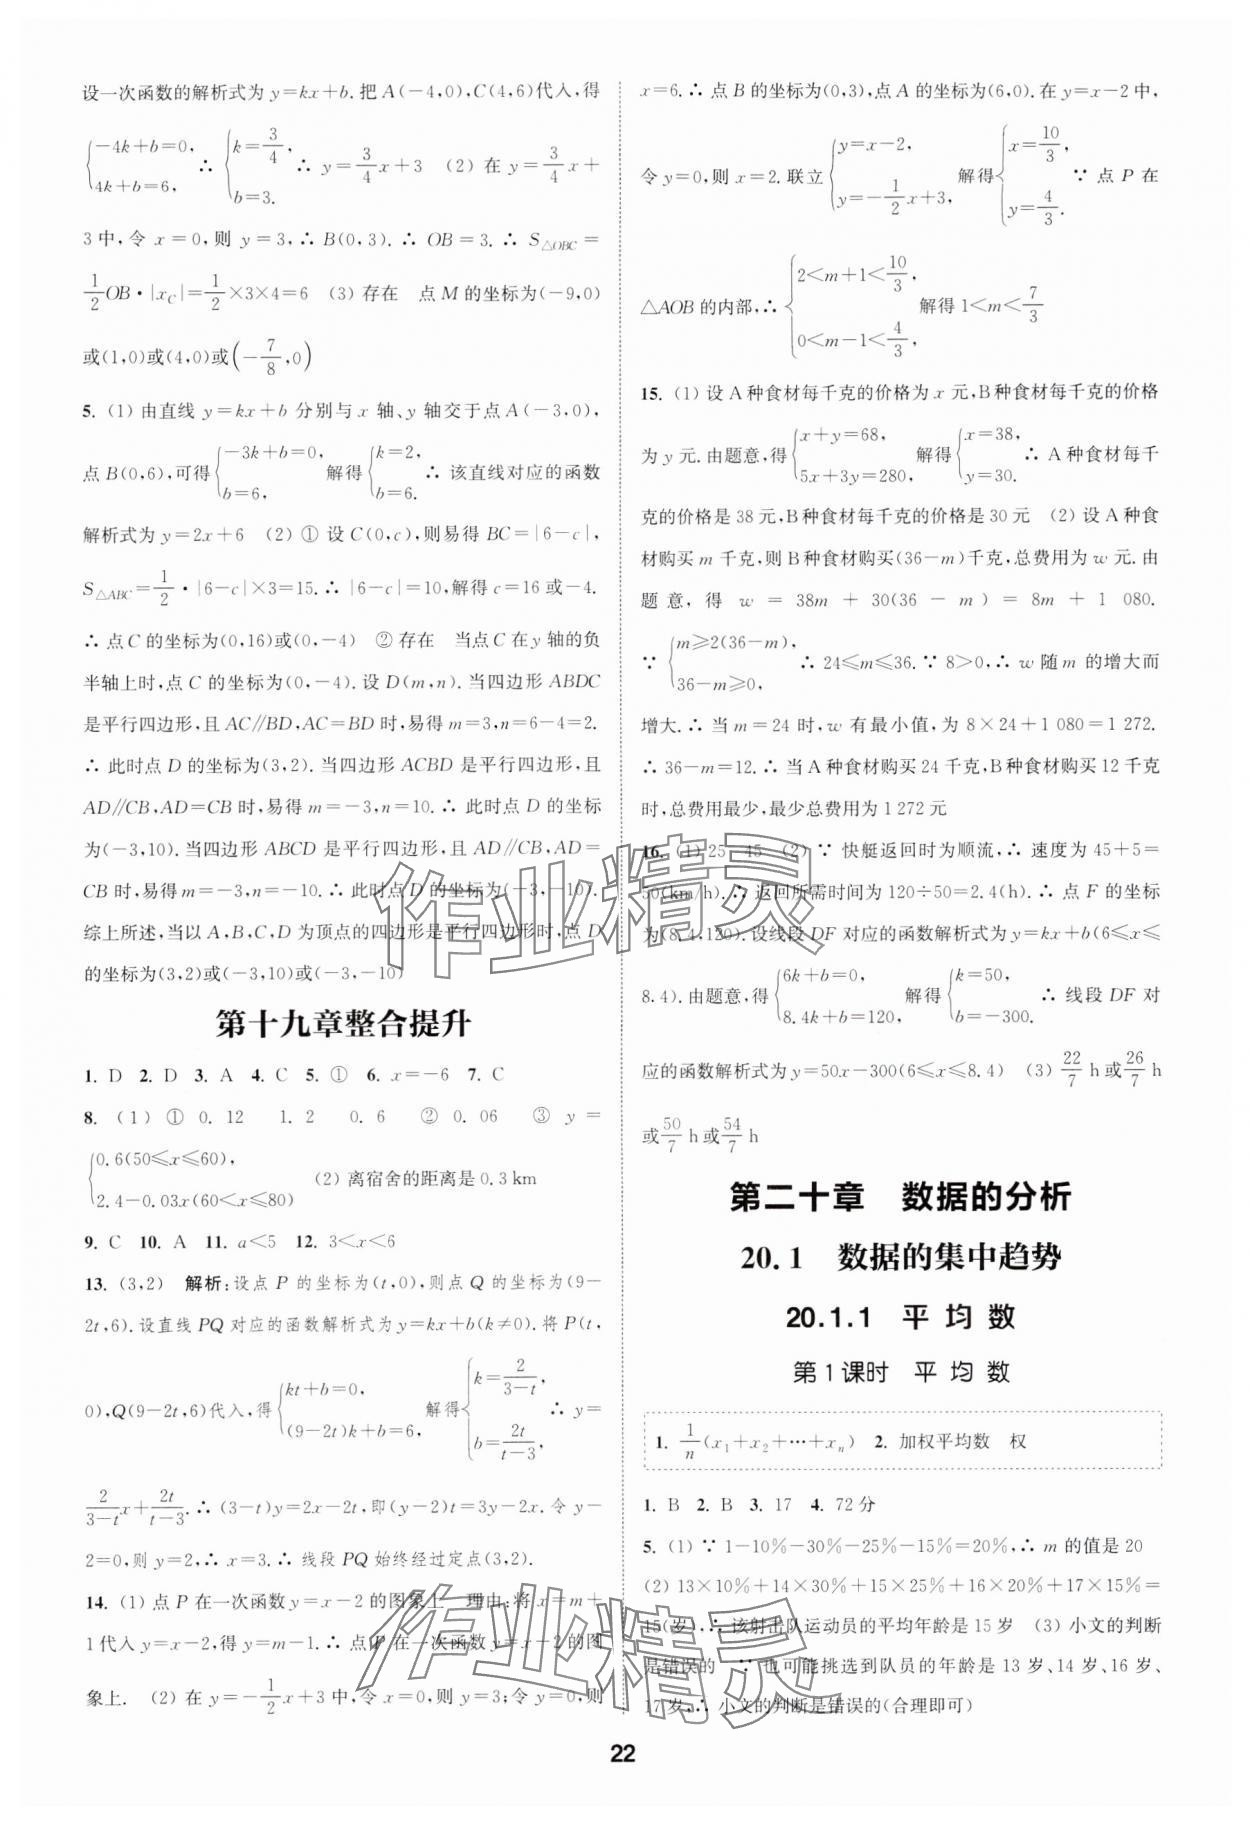 设一次函数的解析式为 y=kx+b. 把 A(-4,0),C(4,6)代入,得
{-4k+b=0, 4k+b=6, ∴ {k=3/4, b=3. ∴ y=3/4x+3 (2) 在 y=3/4x+
3 中,令 x=0,则 y=3,∴ B(0,3). ∴ OB=3. ∴ S△OBC=
1/2OB·|xC|=1/2×3×4=6 (3) 存在 点 M 的坐标为(-9,0)
或(1,0)或(4,0)或(-7/8,0)
5. (1) 由直线 y=kx+b 分别与 x 轴、y 轴交于点 A(-3,0),
点 B(0,6),可得{-3k+b=0, b=6, 解得{k=2, b=6. ∴ 该直线对应的函数
解析式为 y=2x+6 (2) ① 设 C(0,c),则易得 BC=|6-c|,
S△ABC=1/2·|6-c|×3=15. ∴ |6-c|=10,解得 c=16 或-4.
∴ 点 C 的坐标为(0,16)或(0,-4) ② 存在 当点 C 在 y 轴的负
半轴上时,点 C 的坐标为(0,-4). 设 D(m,n). 当四边形 ABDC
是平行四边形,且 AC∥BD,AC=BD 时,易得 m=3,n=6-4=2.
∴ 此时点 D 的坐标为(3,2). 当四边形 ACBD 是平行四边形,且
AD∥CB,AD=CB 时,易得 m=-3,n=10. ∴ 此时点 D 的坐标
为(-3,10). 当四边形 ABCD 是平行四边形,且 AD∥CB,AD=
CB 时,易得 m=-3,n=-10. ∴ 此时点 D 的坐标为(-3,-10).
综上所述,当以 A,B,C,D 为顶点的四边形是平行四边形时,点 D
的坐标为(3,2)或(-3,10)或(-3,-10)
第十九章整合提升
1. D 2. D 3. A 4. C 5. ① 6. x=-6 7. C
8. (1) ① 0.12 1.2 0.6 ② 0.06 ③ y=
{0.6(50≤x≤60), 2.4-0.03x(60<x≤80) (2) 离宿舍的距离是 0.3 km
9. C 10. A 11. a<5 12. 3<x<6
13. (3,2) 解析:设点 P 的坐标为(t,0),则点 Q 的坐标为(9-
2t,6). 设直线 PQ 对应的函数解析式为 y=kx+b(k≠0). 将 P(t,
0),Q(9-2t,6)代入,得{kt+b=0, (9-2t)k+b=6, 解得{k=2/(3-t), b=2t/(t-3), ∴ y=
2/(3-t)x+2t/(t-3). ∴ (3-t)y=2x-2t,即(y-2)t=3y-2x. 令 y-
2=0,则 y=2,∴ x=3. ∴ 线段 PQ 始终经过定点(3,2).
14. (1) 点 P 在一次函数 y=x-2 的图象上 理由:将 x=m+
1 代入 y=x-2,得 y=m-1. ∴ 点 P 在一次函数 y=x-2 的图
象上. (2) 在 y=-1/2x+3 中,令 x=0,则 y=3;令 y=0,则
x=6. ∴ 点 B 的坐标为(0,3),点 A 的坐标为(6,0). 在 y=x-2 中,
令 y=0,则 x=2. 联立{y=x-2, y=-1/2x+3, 解得{x=10/3, y=4/3. ∵ 点 P 在
△AOB 的内部,∴ {2<m+1<10/3, 0<m-1<4/3, 解得 1<m<7/3
15. (1) 设 A 种食材每千克的价格为 x 元,B 种食材每千克的价格
为 y 元. 由题意,得{x+y=68, 5x+3y=280, 解得{x=38, y=30. ∴ A 种食材每千
克的价格是 38 元,B 种食材每千克的价格是 30 元 (2) 设 A 种食
材购买 m 千克,则 B 种食材购买(36-m)千克,总费用为 w 元. 由
题意,得 w=38m+30(36-m)=8m+1 080.
∵ {m≥2(36-m), 36-m≥0, ∴ 24≤m≤36. ∵ 8>0,∴ w 随 m 的增大而
增大. ∴ 当 m=24 时,w 有最小值,为 8×24+1 080=1 272.
∴ 36-m=12. ∴ 当 A 种食材购买 24 千克,B 种食材购买 12 千克
时,总费用最少,最少总费用为 1 272 元
16. (1) 25 45 (2) ∵ 快艇返回时为顺流,∴ 速度为 45+5=
50(km/h). ∴ 返回所需时间为 120÷50=2.4(h). ∴ 点 F 的坐标
为(8.4,120). 设线段 DF 对应的函数解析式为 y=kx+b(6≤x≤
8.4). 由题意,得{6k+b=0, 8.4k+b=120, 解得{k=50, b=-300. ∴ 线段 DF 对
应的函数解析式为 y=50x-300(6≤x≤8.4) (3) 22/7 h 或 26/7 h
或 50/7 h 或 54/7 h
第二十章 数据的分析
20.1 数据的集中趋势
20.1.1 平均数
第1课时 平均数
1. 1/n(x1+x2+…+xn) 2. 加权平均数 权
1. B 2. B 3. 17 4. 72 分
5. (1) ∵ 1-10%-30%-25%-15%=20%,∴ m 的值是 20
(2) 13×10%+14×30%+15×25%+16×20%+17×15%=
15(岁),∴ 该射击队运动员的平均年龄是 15 岁 (3) 小文的判断
是错误的 ∵ 也可能挑选到队员的年龄是 13 岁、14 岁、16 岁、
17 岁,∴ 小文的判断是错误的(合理即可)
22
作业精灵
作业精灵